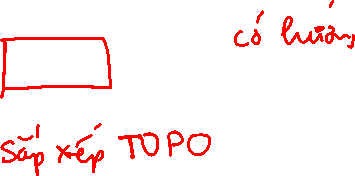 có hướng
Sắp xếp TOPO